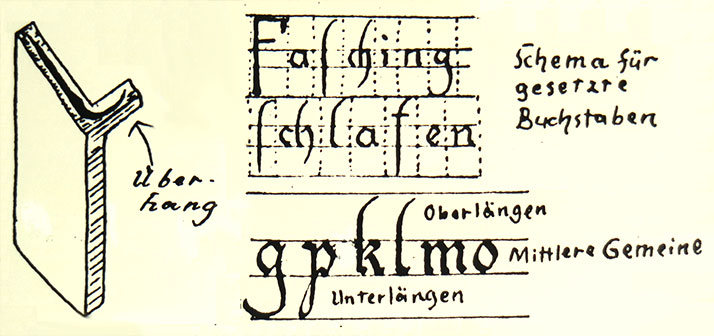 Über-
hang
Faſching
ſchlafen
Schema für
gesetzte
Buchstaben
Oberlängen
gpklmo
Mittlere Gemeine
Unterlängen